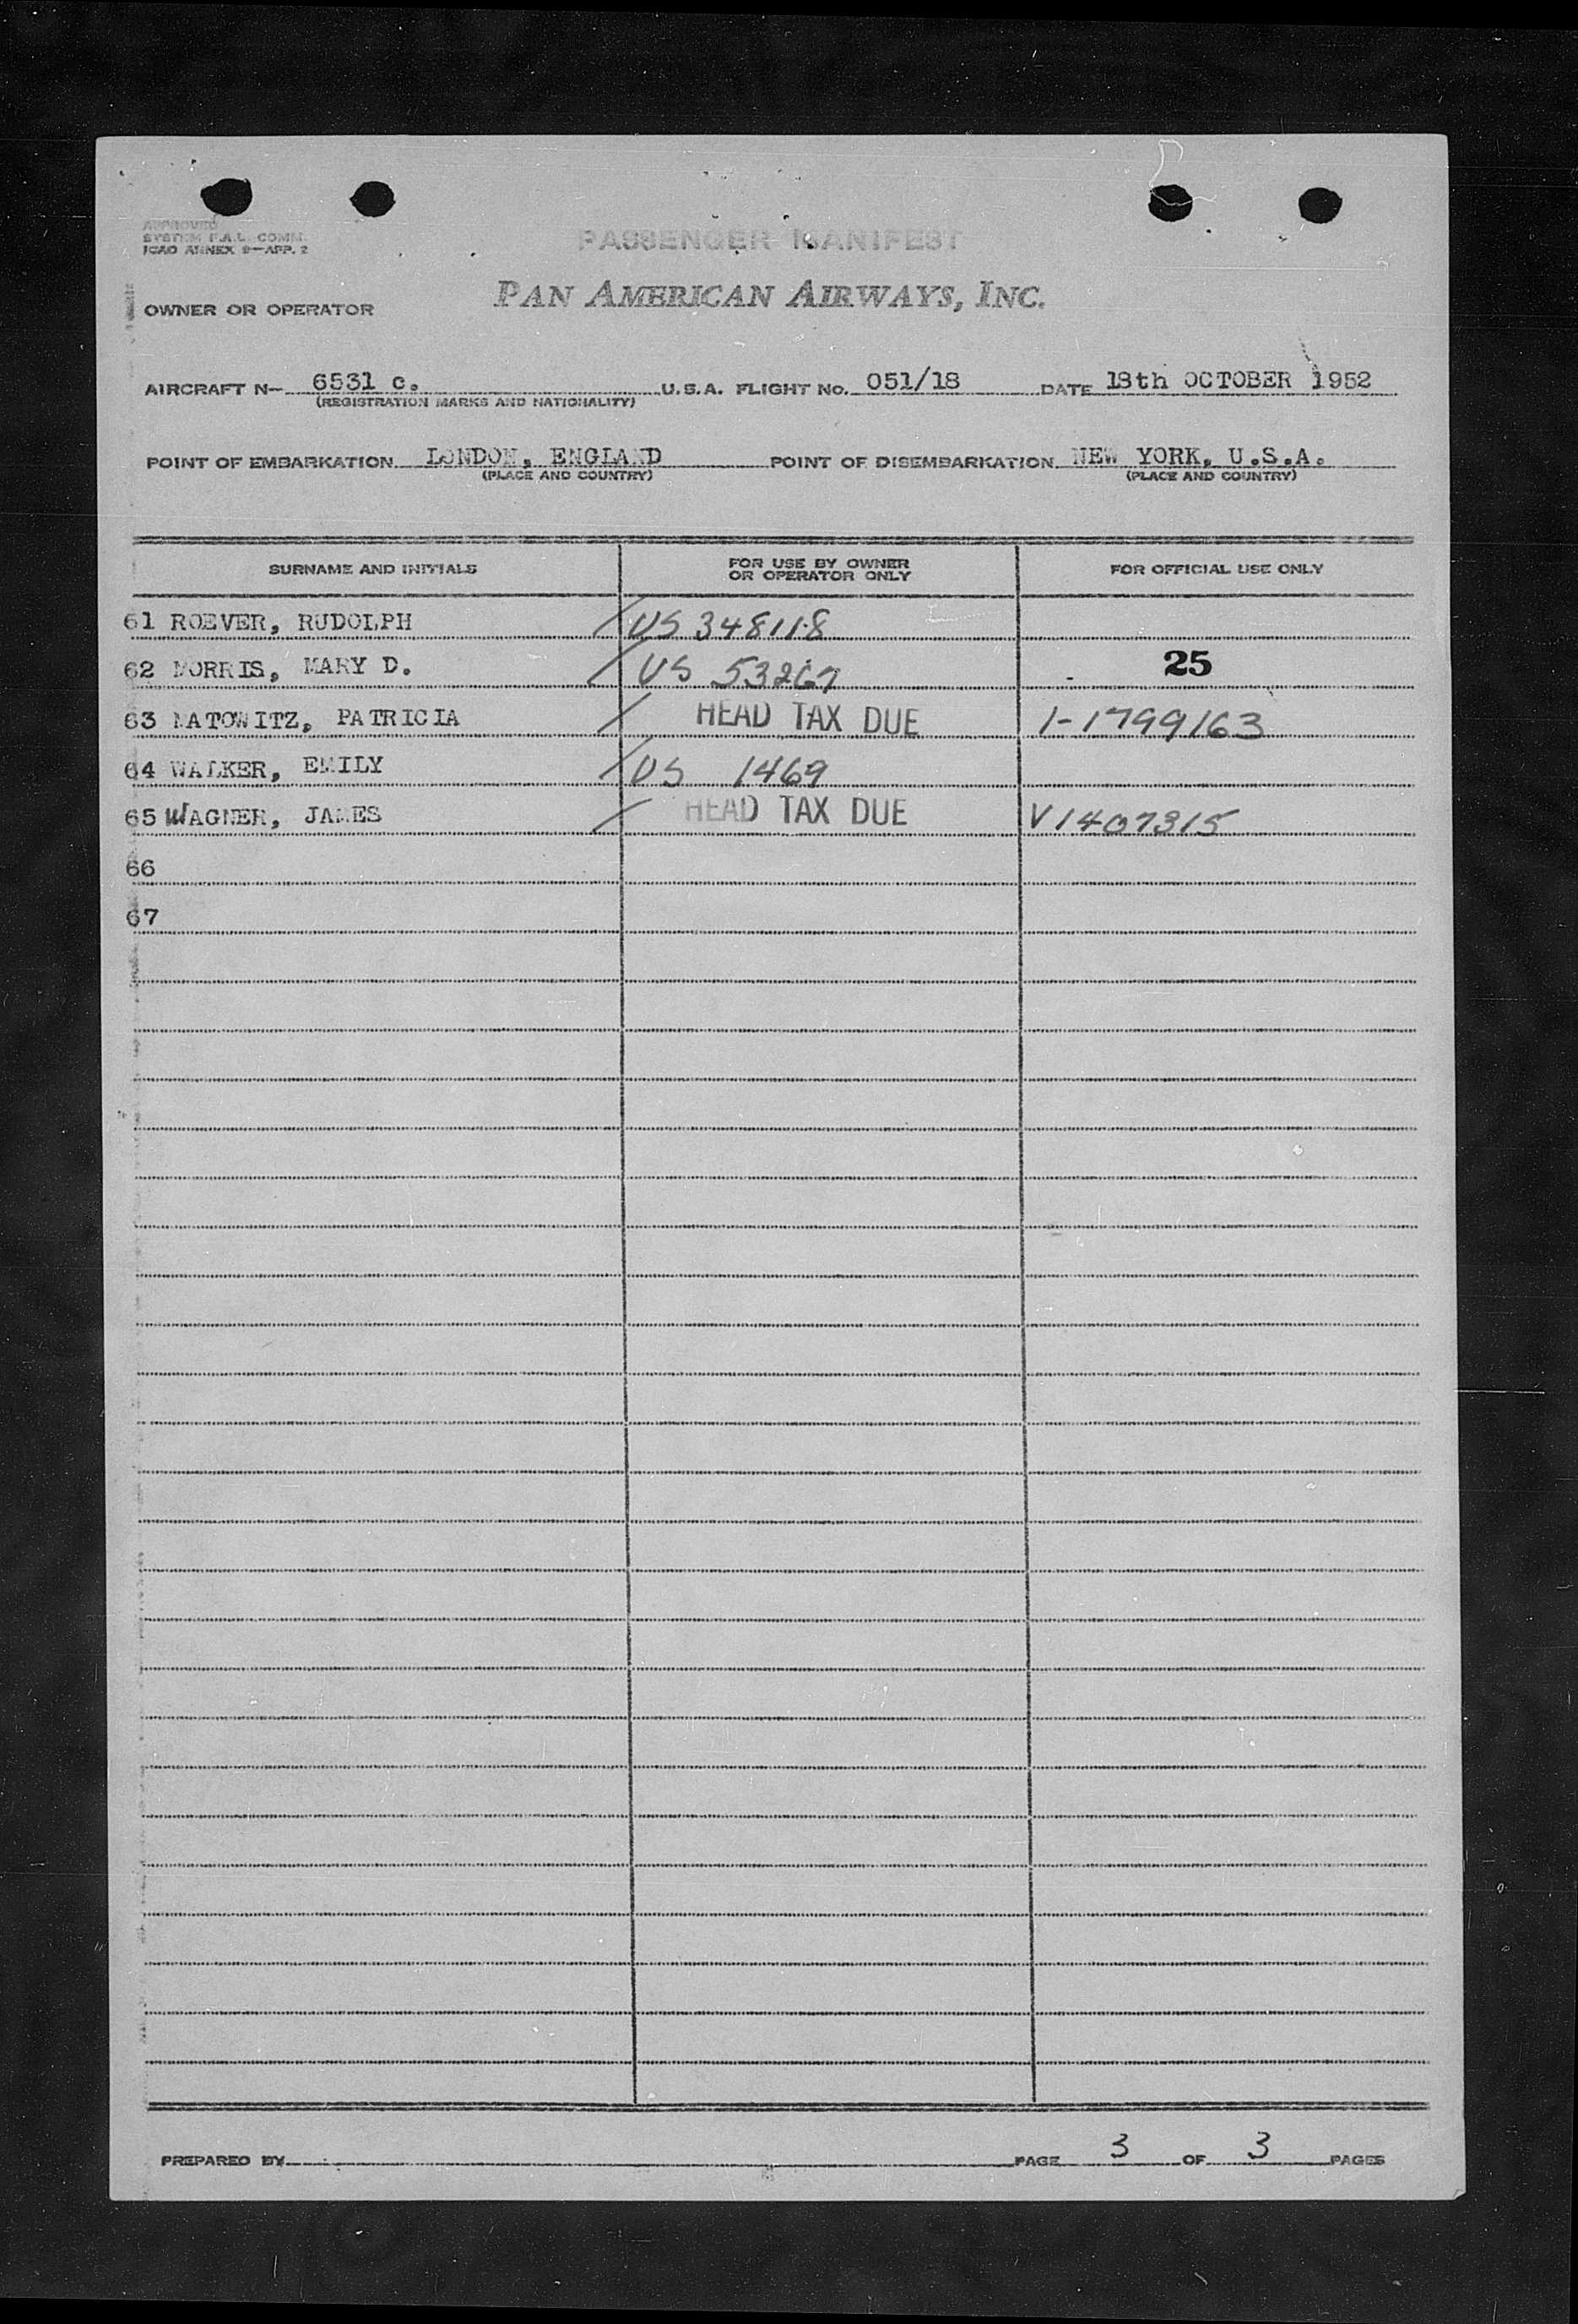 APPROVED
SYSTEM F.A.L. COMM.
ICAO ANNEX 9—APP. 2
PASSENGER MANIFEST
PAN AMERICAN AIRWAYS, INC.
OWNER OR OPERATOR
AIRCRAFT N— 6531 c. U.S.A. FLIGHT No. 051/18 DATE 18th OCTOBER 1952
(REGISTRATION MARKS AND NATIONALITY)
POINT OF EMBARKATION LONDON, ENGLAND POINT OF DISEMBARKATION NEW YORK, U.S.A.
(PLACE AND COUNTRY) (PLACE AND COUNTRY)
SURNAME AND INITIALS FOR USE BY OWNER OR OPERATOR ONLY FOR OFFICIAL USE ONLY
61 ROEVER, RUDOLPH / US 348118
62 MORRIS, MARY D. / US 53267 25
63 MATOWITZ, PATRICIA / HEAD TAX DUE 1-1799163
64 WALKER, EMILY / US 1469
65 WAGNER, JAMES / HEAD TAX DUE V1407315
66
67
PREPARED BY PAGE 3 OF 3 PAGES